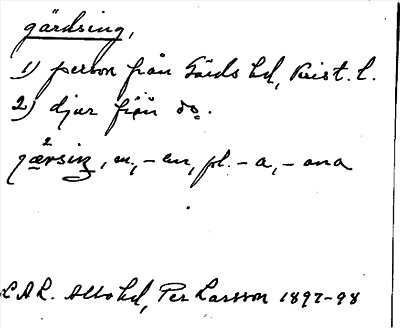 gärdsing,
1) person från Gärds hd, Krist. l.
2) djur från do.
gærsiŋ, m, -en, pl. -a, -ana
L.A.L. Albo hd, Per Larsson 1897-98